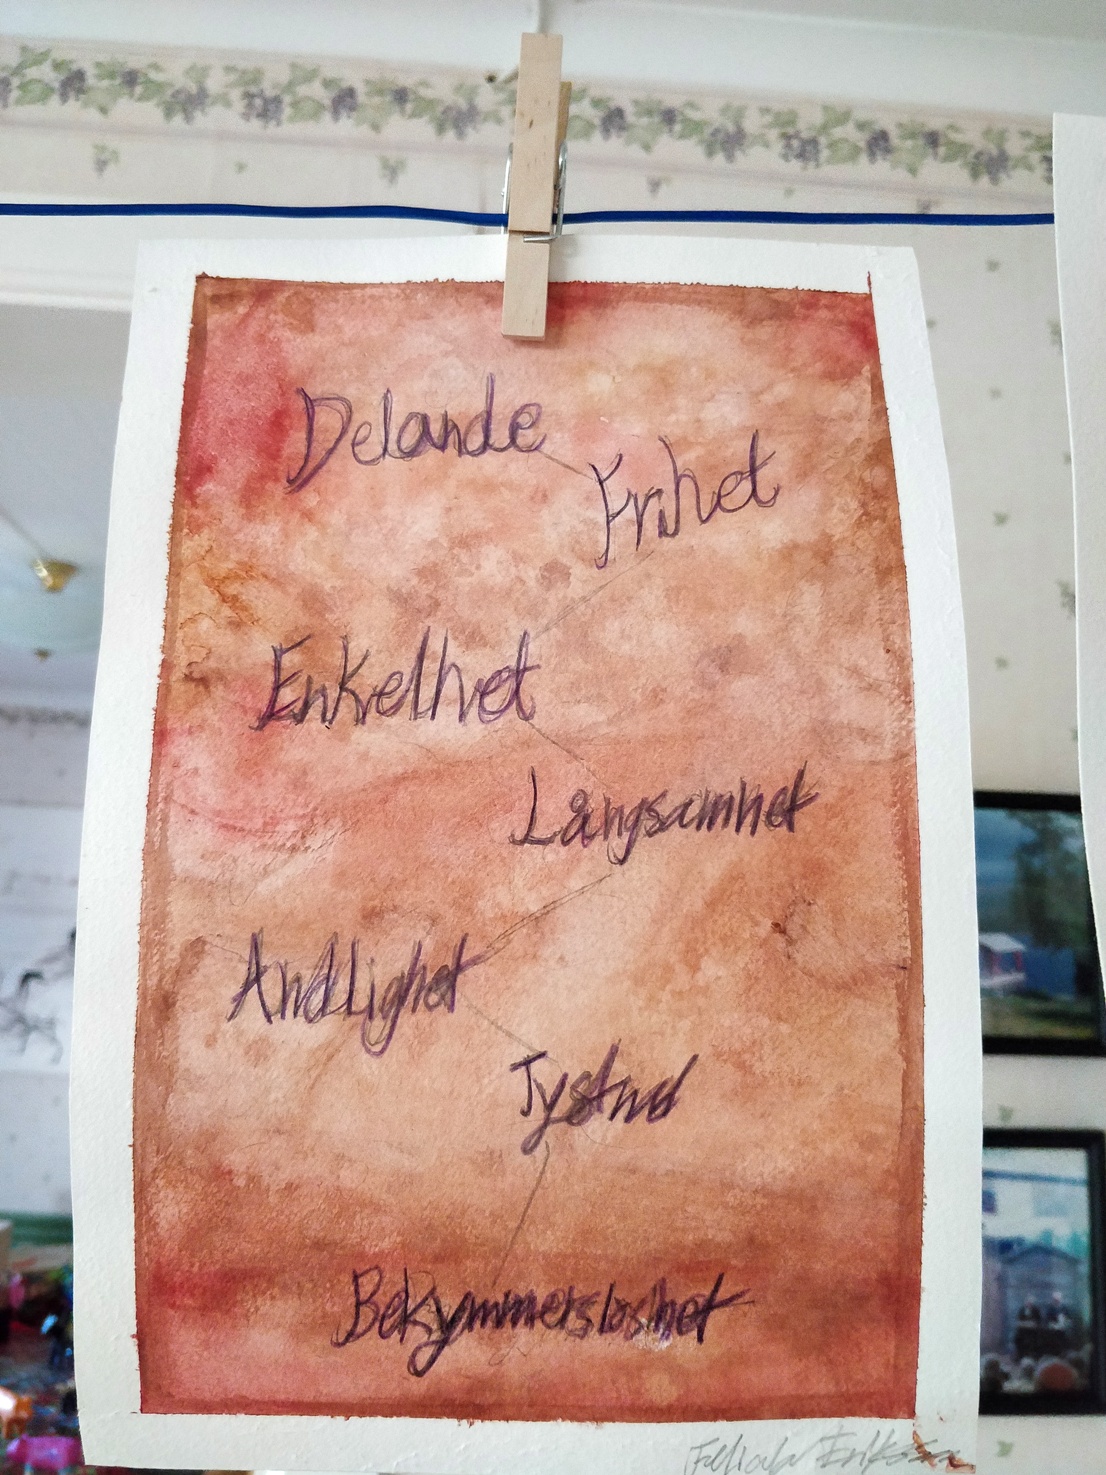 Delande
Frihet
Enkelhet
Långsamhet
Andlighet
Tystnad
Bekymmerslöshet